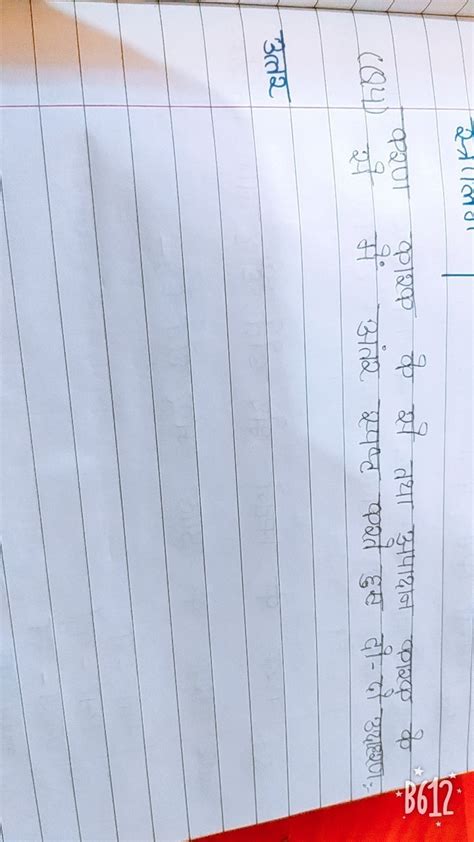 करण कारक के से तथा अपादान कारक के
(04) से में अंतर स्पष्ट करते हुए दो-दो उदाहरण:-
उत्तर
B612